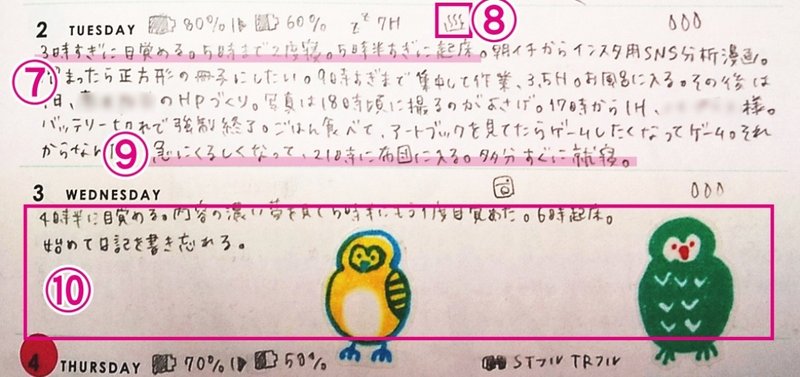 ⑧
2 TUESDAY 80% 60% zz 7H 000
3時すぎに目覚める。5時まで2度寝。5時半すぎに起床。朝イチからインスタ用SNS分析漫画。
⑦ まったら正方形の冊子にしたい。9時すぎまで集中して作業、3.5H。お風呂に入る。その後は
1日、 のHPづくり。写真は18時頃に撮るのがよさげ。17時から1H、 様。
バッテリー切れで強制終了。ごはん食べて、アートブックを見てたらゲームしたくなってゲーム。それ
から ⑨ 急にくるしくなって、21時に布団に入る。多分すぐに就寝。
3 WEDNESDAY 000
4時半に目覚める。内容の濃い夢を見て5時半にもう1度目覚めた。6時起床。
始めて日記を書き忘れる。
⑩
4 THURSDAY 70% 50% STフル TRフル